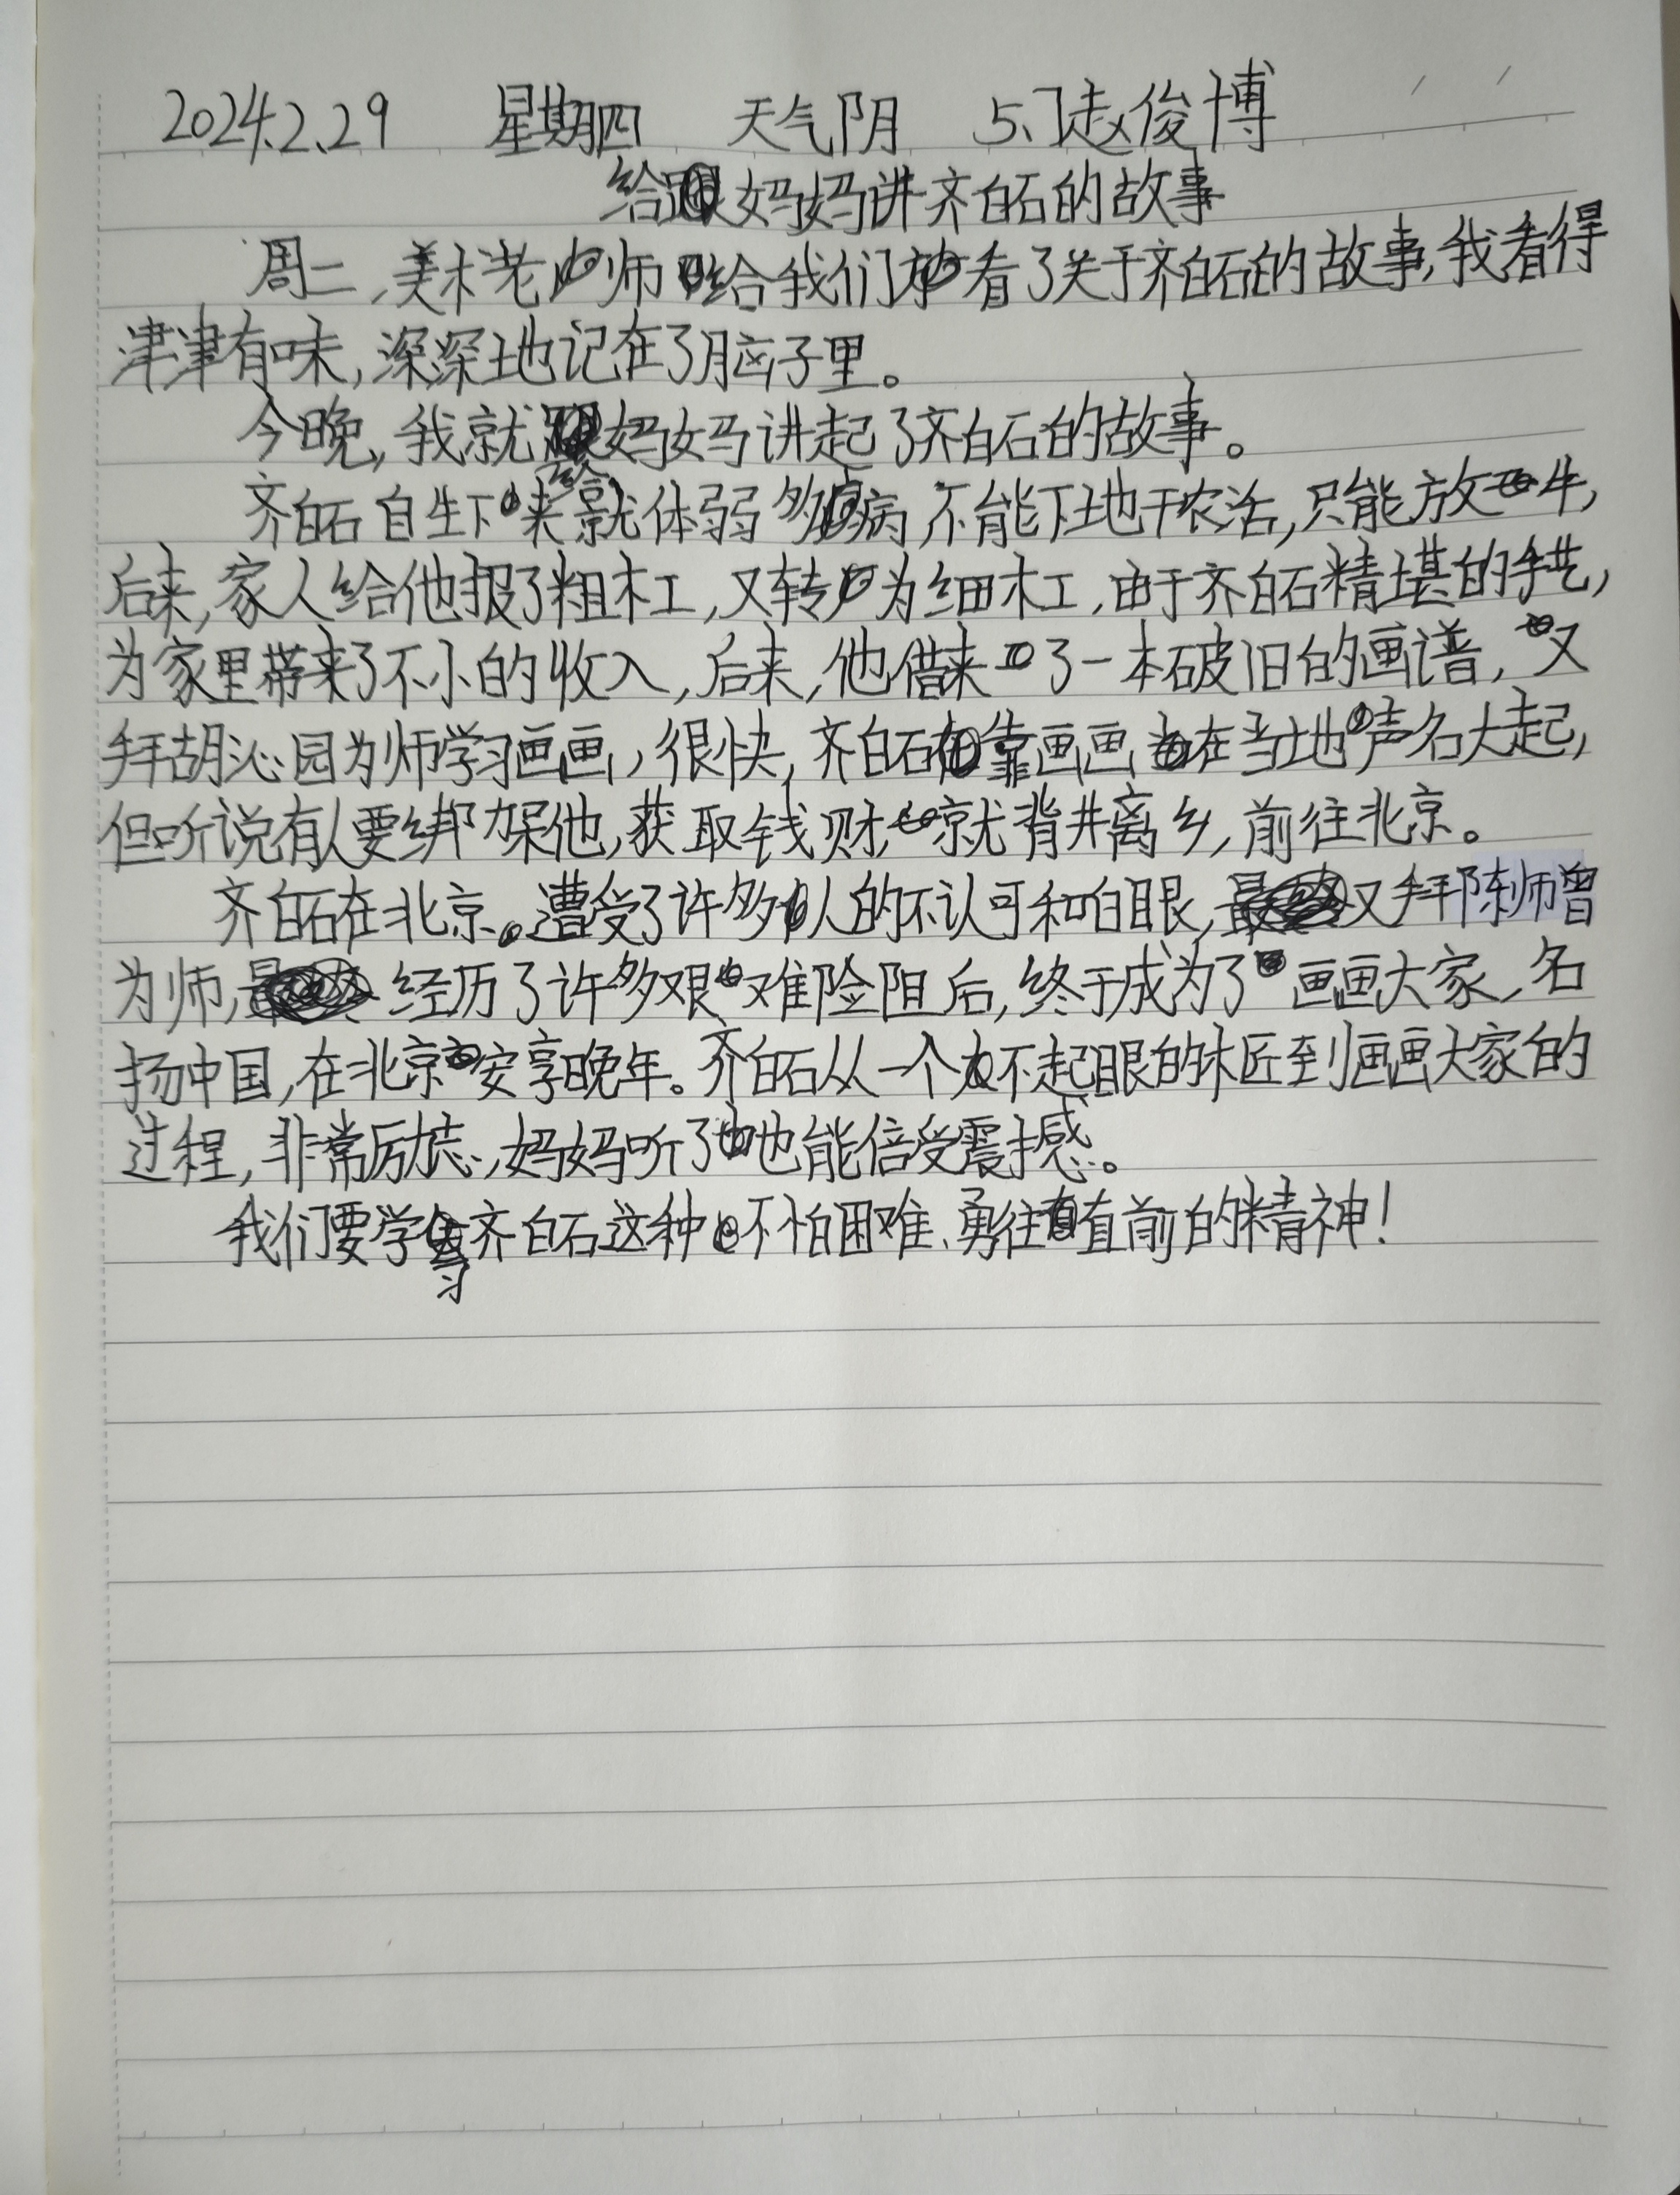 2024.2.29 星期四 天气阴 5.1赵俊博
给妈妈讲齐白石的故事
周二,美术老师给我们看了关于齐白石的故事,我看得
津津有味,深深地记在了脑子里。
今晚,我就给妈妈讲起了齐白石的故事。
齐白石自生下来就体弱多病,不能下地干农活,只能放牛,
后来,家人给他报了粗木工,又转为细木工,由于齐白石精堪的手艺,
为家里带来了不小的收入,后来,他借来了一本破旧的画谱,又
拜胡沁园为师学习画画,很快,齐白石靠画画在当地声名大起,
但听说有人要绑架他,获取钱财,就背井离乡,前往北京。
齐白石在北京。遭受了许多人的不认可和白眼,又拜陈师曾
为师,经历了许多艰难险阻后,终于成为了画画大家,名
扬中国,在北京安享晚年。齐白石从一个不起眼的木匠到画画大家的
过程,非常励志,妈妈听了也能倍受震撼。
我们要学习齐白石这种不怕困难、勇往直前的精神!